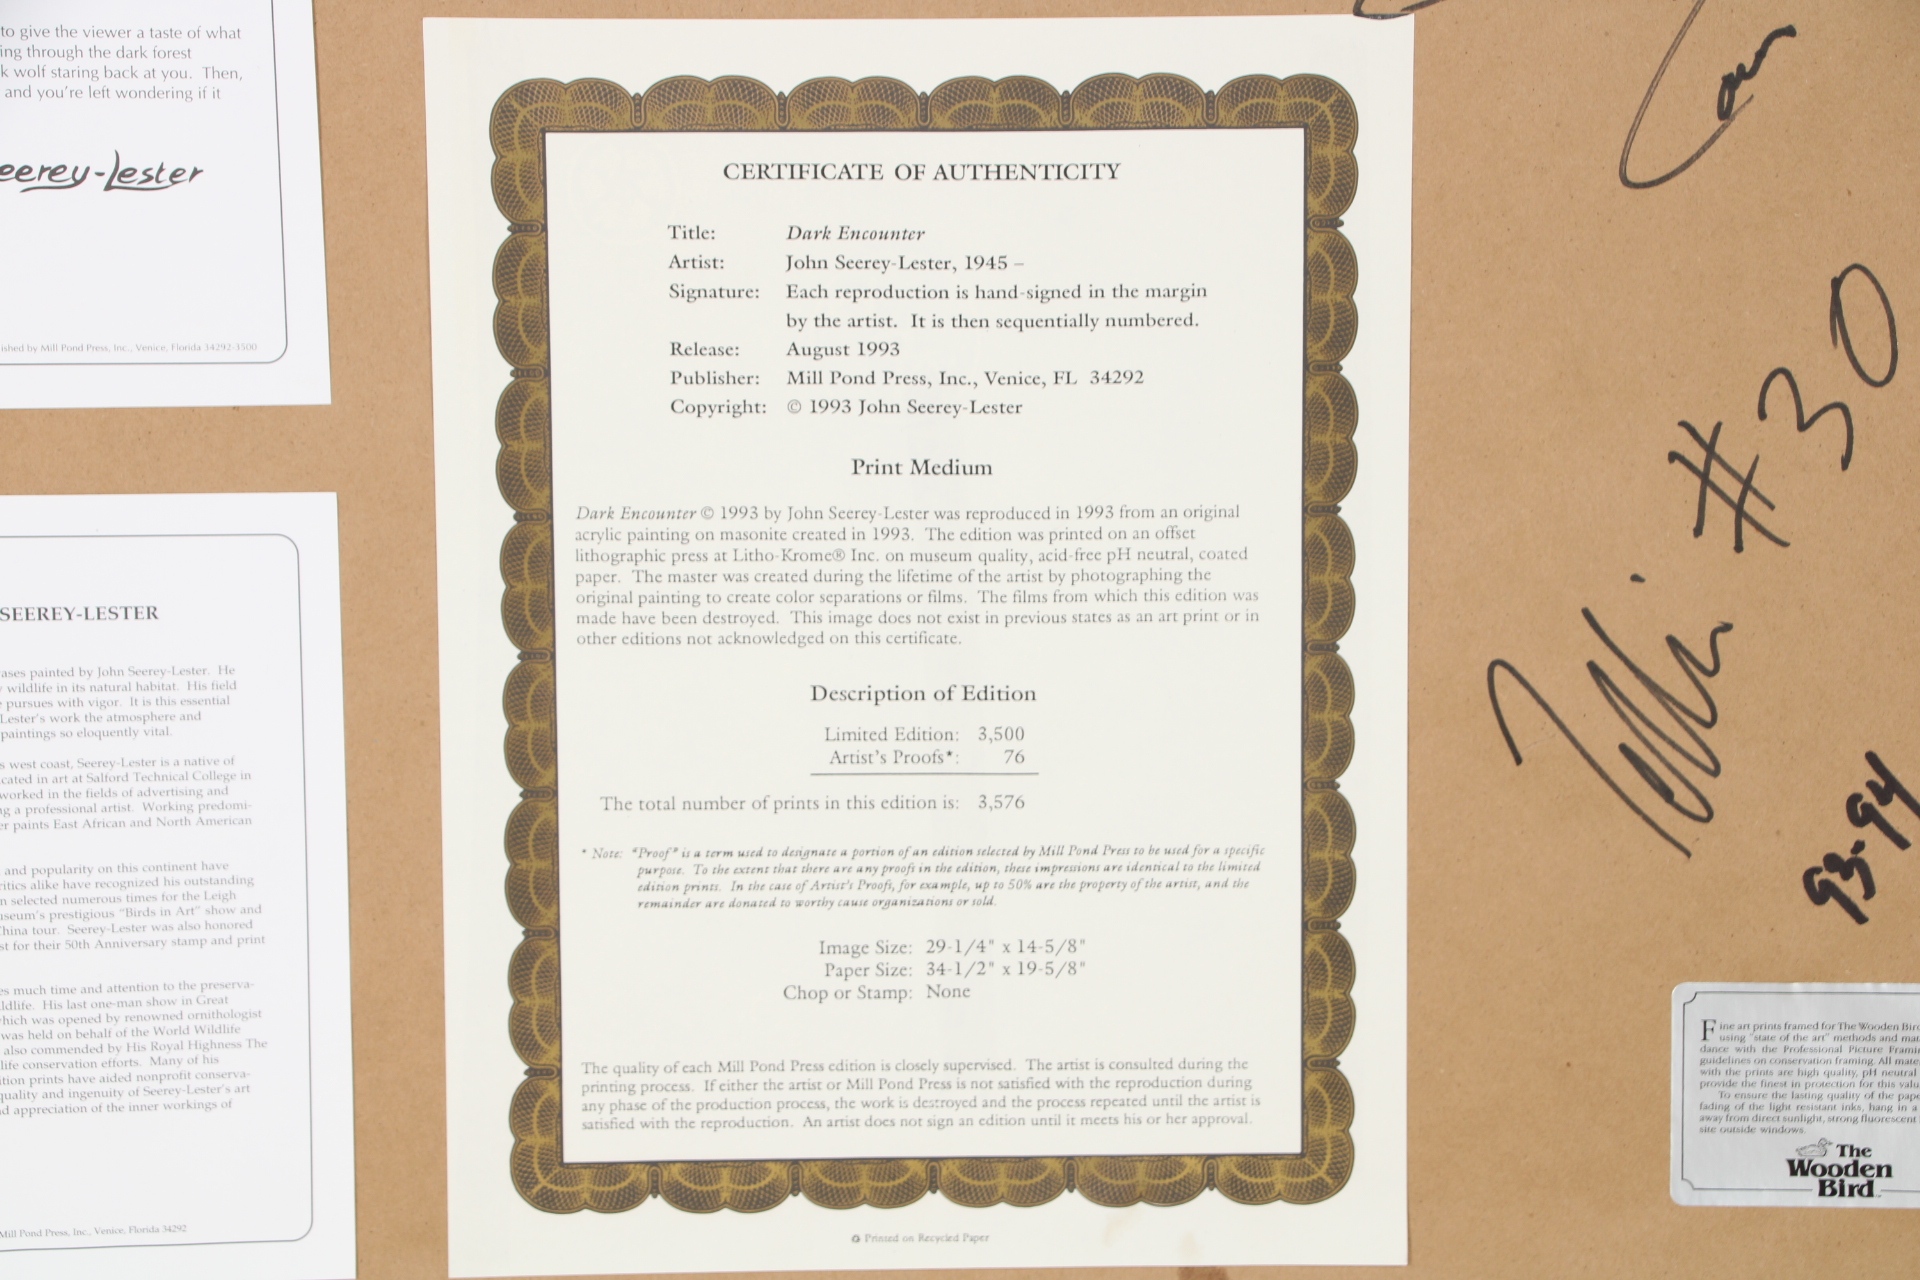 to give the viewer a taste of what
ing through the dark forest
k wolf staring back at you. Then,
and you're left wondering if it
eerey-Lester
ished by Mill Pond Press, Inc., Venice, Florida 34292-3500
SEEREY-LESTER
ases painted by John Seerey-Lester. He
wildlife in its natural habitat. His field
pursues with vigor. It is this essential
Lester's work the atmosphere and
paintings so eloquently vital.
s west coast, Seerey-Lester is a native of
cated in art at Salford Technical College in
worked in the fields of advertising and
ng a professional artist. Working predomi-
er paints East African and North American
and popularity on this continent have
ritics alike have recognized his outstanding
n selected numerous times for the Leigh
useum's prestigious "Birds in Art" show and
China tour. Seerey-Lester was also honored
st for their 50th Anniversary stamp and print
es much time and attention to the preserva-
ldlife. His last one-man show in Great
which was opened by renowned ornithologist
was held on behalf of the World Wildlife
also commended by His Royal Highness The
life conservation efforts. Many of his
ition prints have aided nonprofit conserva-
quality and ingenuity of Seerey-Lester's art
nd appreciation of the inner workings of
Mill Pond Press, Inc., Venice, Florida 34292
CERTIFICATE OF AUTHENTICITY
Title: Dark Encounter
Artist: John Seerey-Lester, 1945 –
Signature: Each reproduction is hand-signed in the margin
by the artist. It is then sequentially numbered.
Release: August 1993
Publisher: Mill Pond Press, Inc., Venice, FL 34292
Copyright: © 1993 John Seerey-Lester
Print Medium
Dark Encounter © 1993 by John Seerey-Lester was reproduced in 1993 from an original
acrylic painting on masonite created in 1993. The edition was printed on an offset
lithographic press at Litho-Krome® Inc. on museum quality, acid-free pH neutral, coated
paper. The master was created during the lifetime of the artist by photographing the
original painting to create color separations or films. The films from which this edition was
made have been destroyed. This image does not exist in previous states as an art print or in
other editions not acknowledged on this certificate.
Description of Edition
Limited Edition: 3,500
Artist's Proofs*: 76
The total number of prints in this edition is: 3,576
* Note: "Proof" is a term used to designate a portion of an edition selected by Mill Pond Press to be used for a specific
purpose. To the extent that there are any proofs in the edition, these impressions are identical to the limited
edition prints. In the case of Artist's Proofs, for example, up to 50% are the property of the artist, and the
remainder are donated to worthy cause organizations or sold.
Image Size: 29-1/4" x 14-5/8"
Paper Size: 34-1/2" x 19-5/8"
Chop or Stamp: None
The quality of each Mill Pond Press edition is closely supervised. The artist is consulted during the
printing process. If either the artist or Mill Pond Press is not satisfied with the reproduction during
any phase of the production process, the work is destroyed and the process repeated until the artist is
satisfied with the reproduction. An artist does not sign an edition until it meets his or her approval.
Printed on Recycled Paper
#30
93-94
Fine art prints framed for The Wooden Bird
using "state of the art" methods and mat
dance with the Professional Picture Frami
guidelines on conservation framing. All mate
with the prints are high quality, pH neutral
provide the finest in protection for this valu
To ensure the lasting quality of the pape
fading of the light resistant inks, hang in a
away from direct sunlight, strong fluorescent
site outside windows.
The
Wooden
Bird